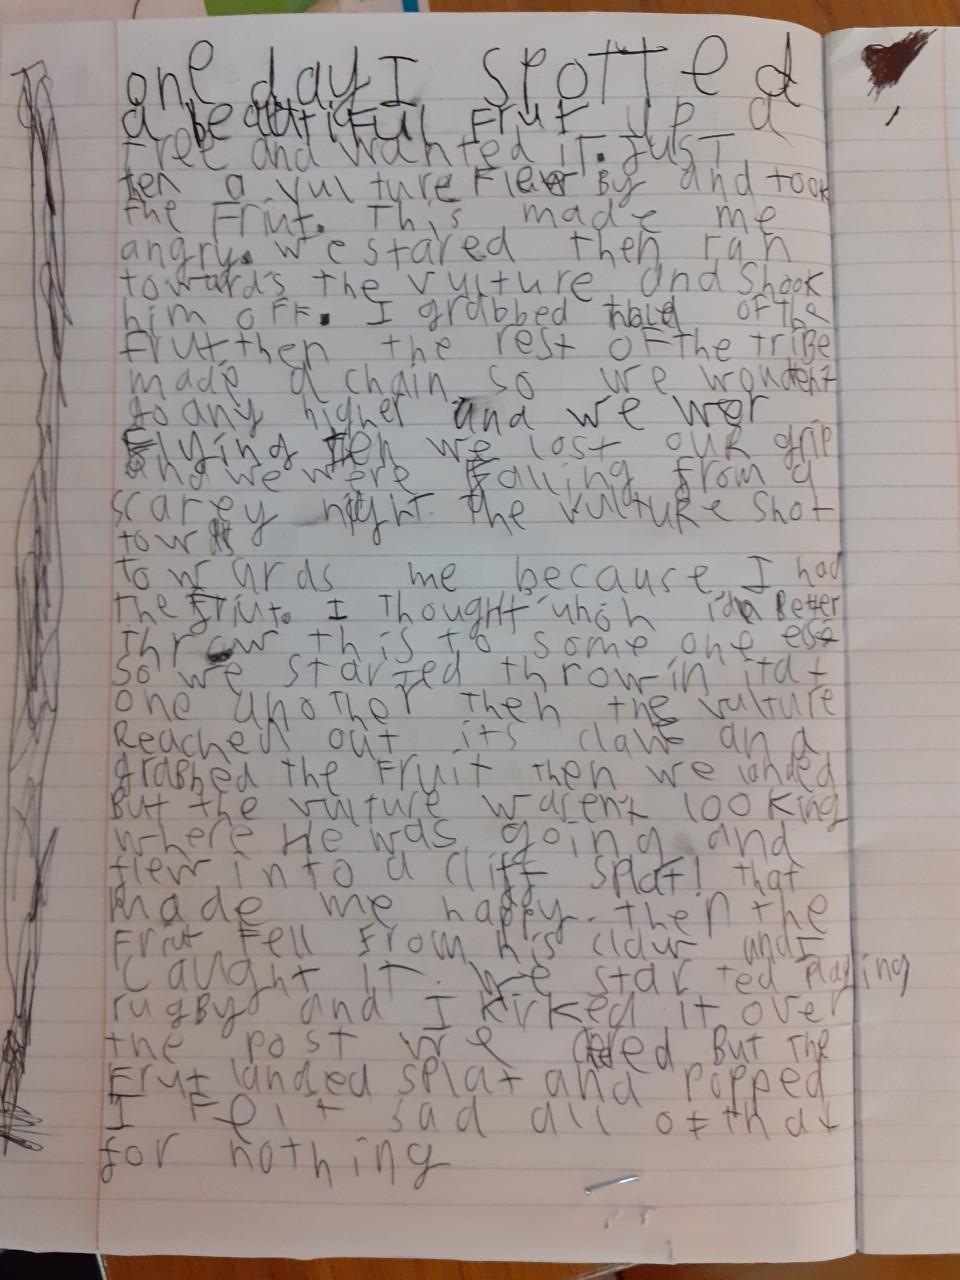 one day I spotted
a beautiful Frut up a
tree and wanted it. Just
ten a vulture Flew By and took
the Friut. This made me
angry. We stared then ran
towards the vulture and Shook
him off. I grabbed hold of the
frut then the rest of the triBe
made a chain so we woudent
go any higher and we wer
Flying ten we lost our grip
and we were Falling from a
scarey hight. The vulture shot
towards me because I had
the Friut. I Thought unoh id Better
throw this to some one else
so we started throwin it at
one unother then the vulture
Reached out its claw and
graBbed the Fruit then we landed
But the vulture warent looking
where He was going and
flew into a cliff splat! that
Made me happy. then the
Friut Fell From his claw and I
Caught it. We started Playing
rugBy and I kicked it over
the post we But The
Frut landed splat and popped
I Felt sad all of that
for nothing